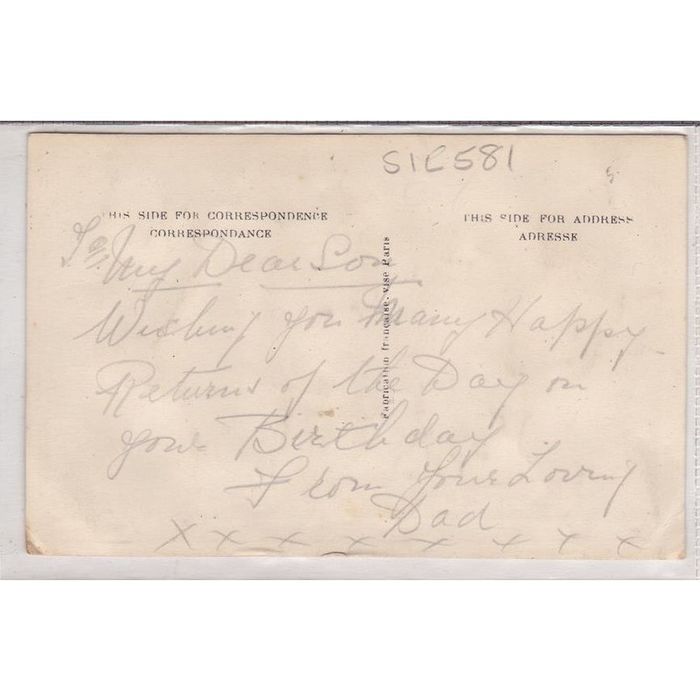 SIL581
THIS SIDE FOR CORRESPONDENCE
CORRESPONDANCE
THIS SIDE FOR ADDRESS
ADRESSE
To My Dear Son
Wishing you Many Happy
Returns of the Day on
your Birthday
From Your Loving
Dad
x x x x x x x x x
Fabrication française, visé Paris